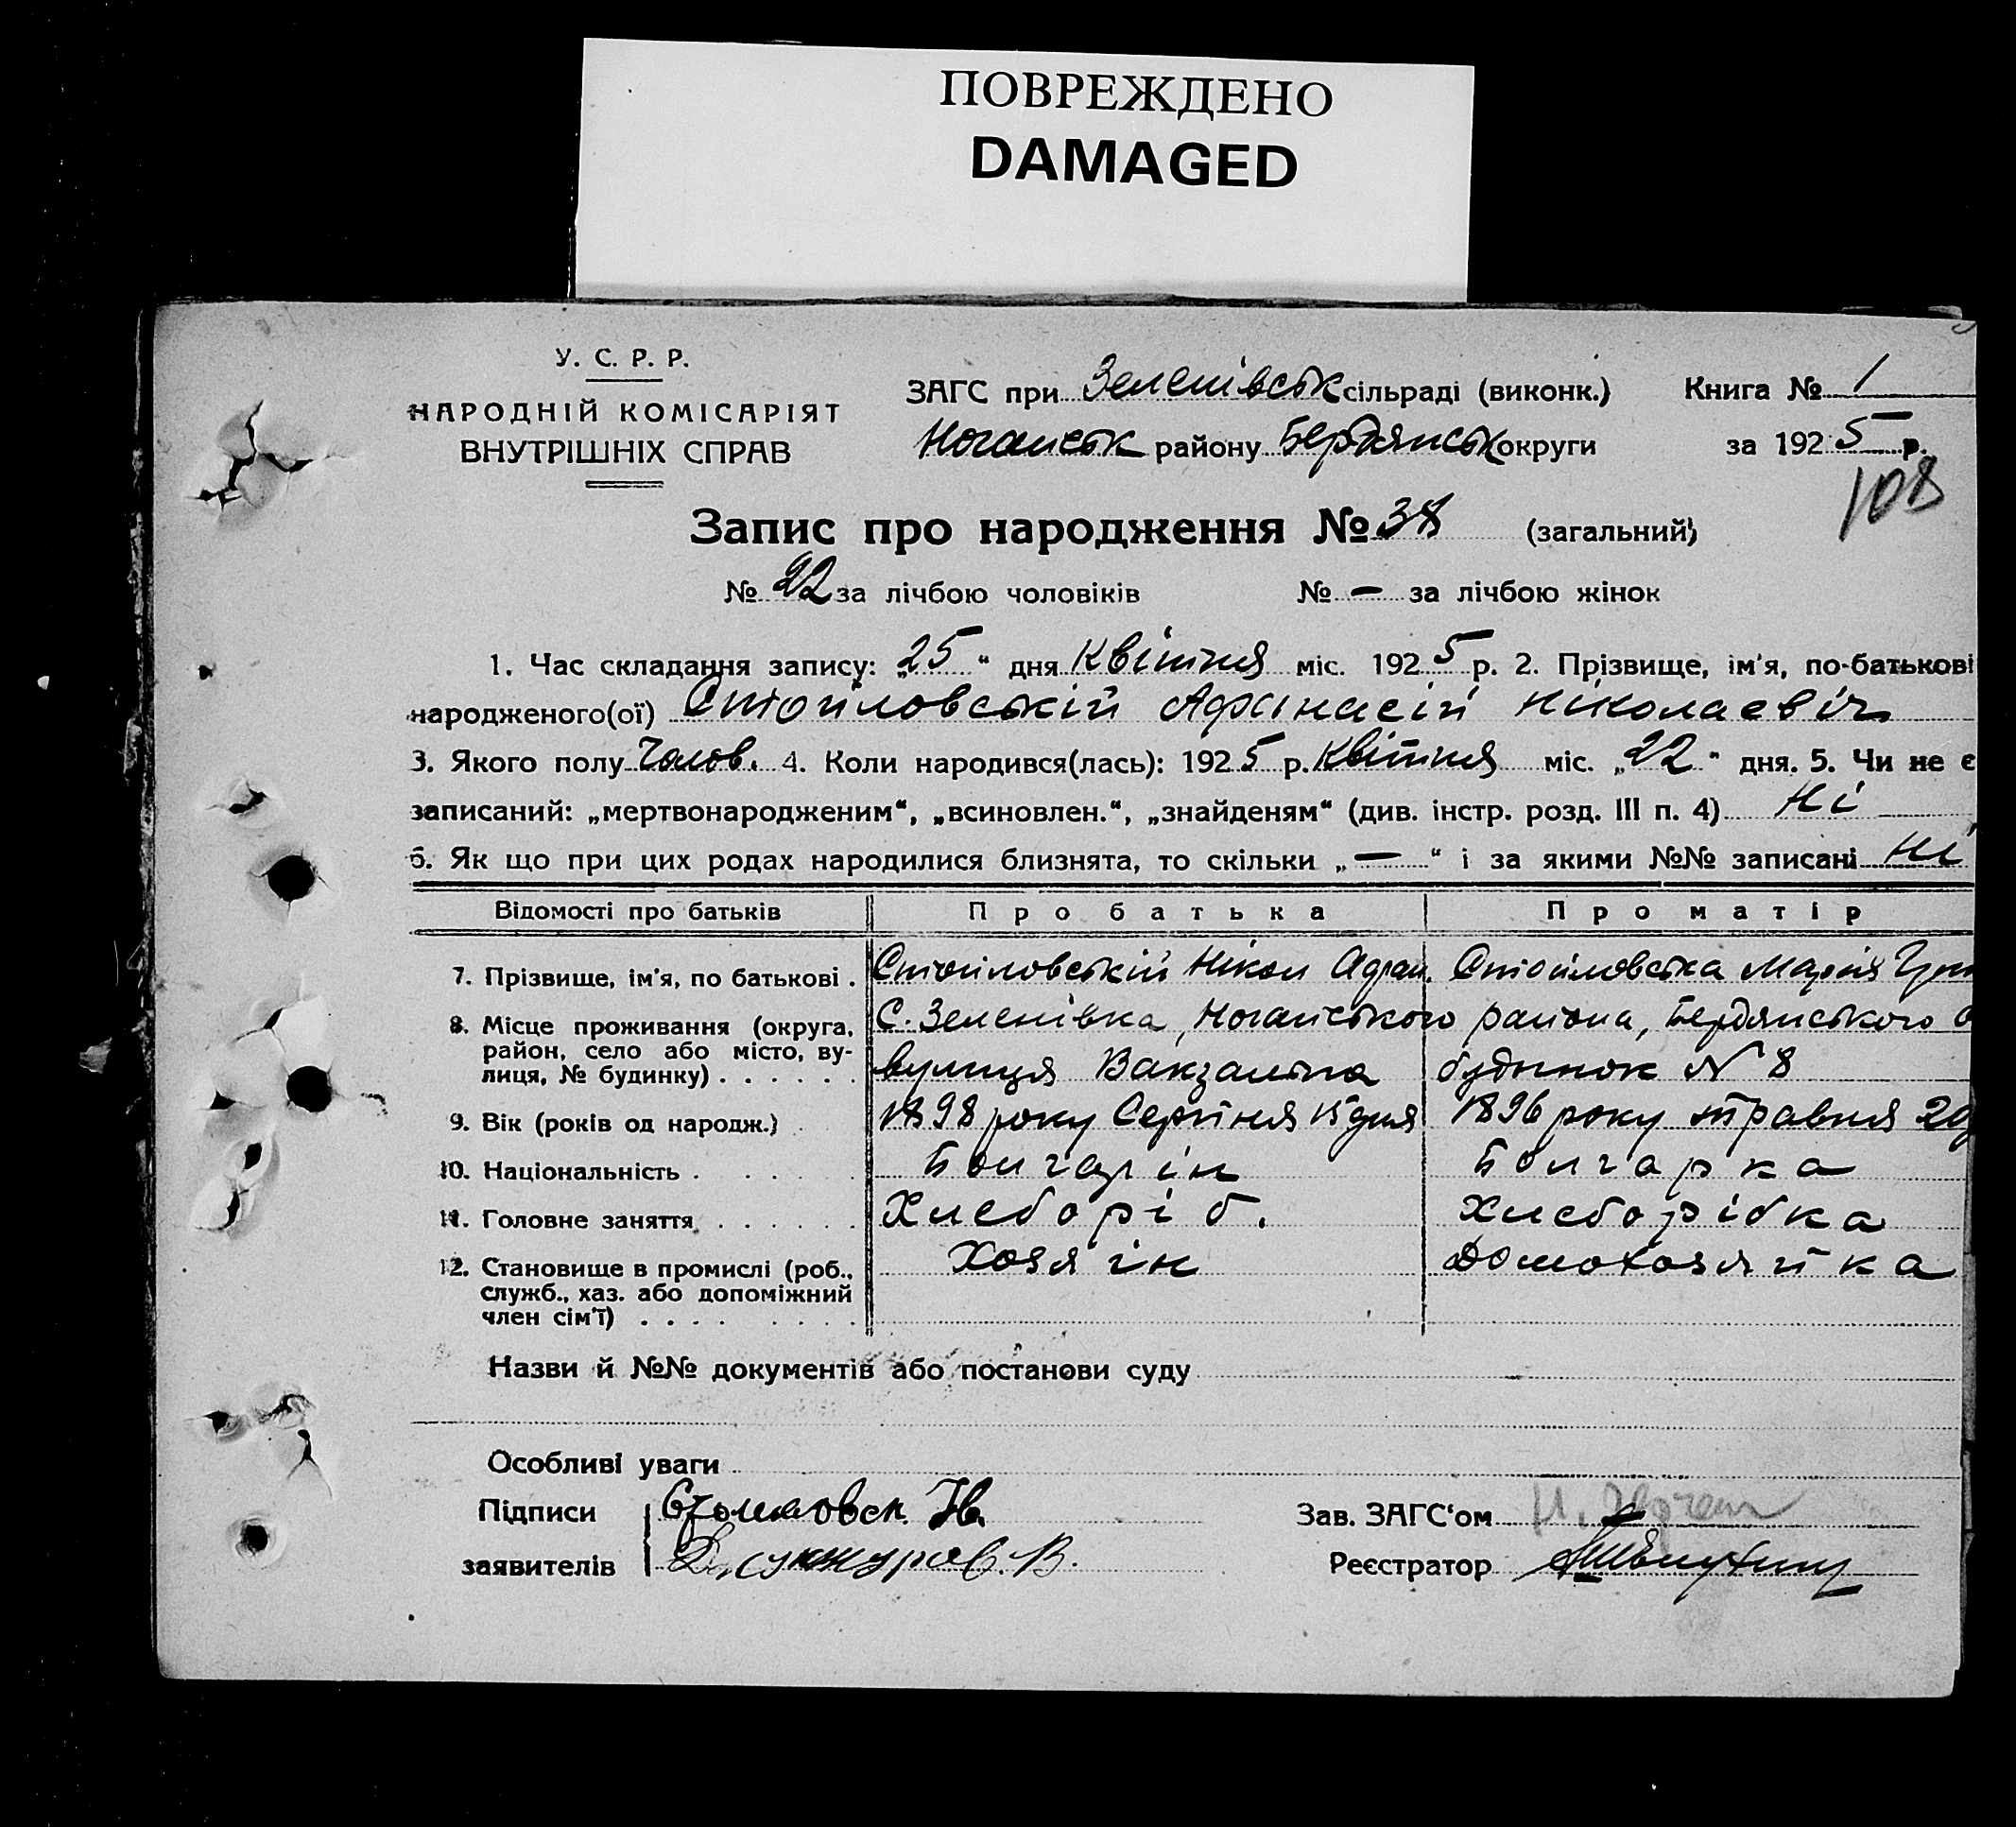 ПОВРЕЖДЕНО
DAMAGED
У. С. Р. Р.
НАРОДНІЙ КОМІСАРІЯТ
ВНУТРІШНІХ СПРАВ
ЗАГС при Зеленівськ сільраді (виконк.) Книга № 1
Ногайськ району Бердянськ округи за 1925 р.
108
Запис про народження № 38 (загальний)
№ 22 за лічбою чоловіків № — за лічбою жінок
1. Час складання запису: „25“ дня квітня міс. 1925 р. 2. Прізвище, ім'я, по-батькові
народженого(ої) Стойловській Афанасій Ніколаєвіч
3. Якого полу Чолов. 4. Коли народився(лась): 1925 р. Квітня міс. „22“ дня. 5. Чи не є
записаний: „мертвонародженим“, „всиновлен.“, „знайденям“ (див. інстр. розд. III п. 4) Ні
6. Як що при цих родах народилися близнята, то скільки „—“ і за якими №№ записані Ні
Відомості про батьків Про батька Про матір
7. Прізвище, ім'я, по батькові . Стойловській Нікол Стойловська Марія
8. Місце проживання (округа, район, село або місто, вулиця, № будинку) . . . . . . С. Зеленівка, Ногайського района, Бердянського
вулиця Вакзальна будинок N 8
9. Вік (років од народж.) 1898 року Серпня 15 дня 1896 року травня 20
10. Національність . Болгарін Болгарка
11. Головне заняття . . . . . . Хлеборіб. Хлеборібка
12. Становище в промислі (роб., служб., хаз. або допоміжний член сім'ї) . . . . Хозяїн Домохозяйка
Назви й №№ документів або постанови суду
Особливі уваги
Підписи
заявителів
Зав. ЗАГС'ом
Реєстратор